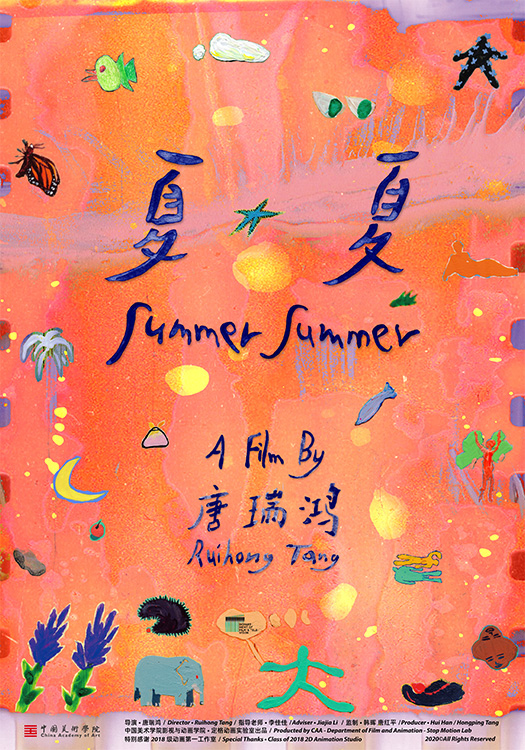 夏 夏
Summer Summer
A Film By
唐瑞鸿
Ruihong Tang
大
导演・唐瑞鸿 / Director・Ruihong Tang / 指导老师・李佳佳 / Adviser・Jiajia Li / 监制・韩晖 唐红平 / Producer・Hui Han / Hongping Tang
中国美术学院影视与动画学院・定格动画实验室出品 / Produced by CAA - Department of Film and Animation - Stop Motion Lab
特别感谢 2018 级动画第一工作室 / Special Thanks・Class of 2018 2D Animation Studio
2020©All Rights Reserved
中国美術学院
China Academy of Art